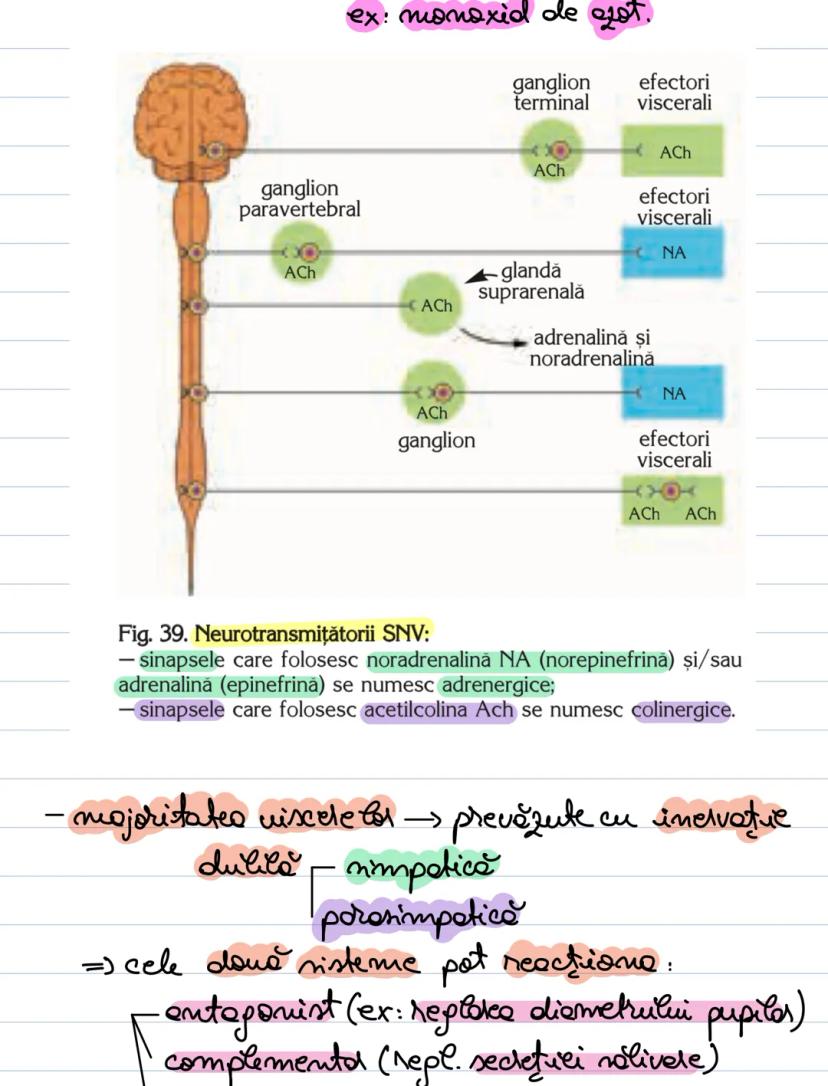 ex: monoxid de azot.
ganglion terminal
efectori viscerali
ACh
ACh
ganglion paravertebral
efectori viscerali
ACh
NA
glandă suprarenală
ACh
adrenalină și noradrenalină
ACh
NA
ganglion
efectori viscerali
ACh ACh
Fig. 39. Neurotransmițătorii SNV:
— sinapsele care folosesc noradrenalină NA (norepinefrină) și/sau
adrenalină (epinefrină) se numesc adrenergice;
— sinapsele care folosesc acetilcolina Ach se numesc colinergice.
- majoritatea viscerelor → prevăzute cu inervație
dublă
simpatică
parasimpatică
⇒ cele două sisteme pot reacționa:
antagonist (ex: reglarea diametrului pupilor)
complementar (regl. secreției salivare)